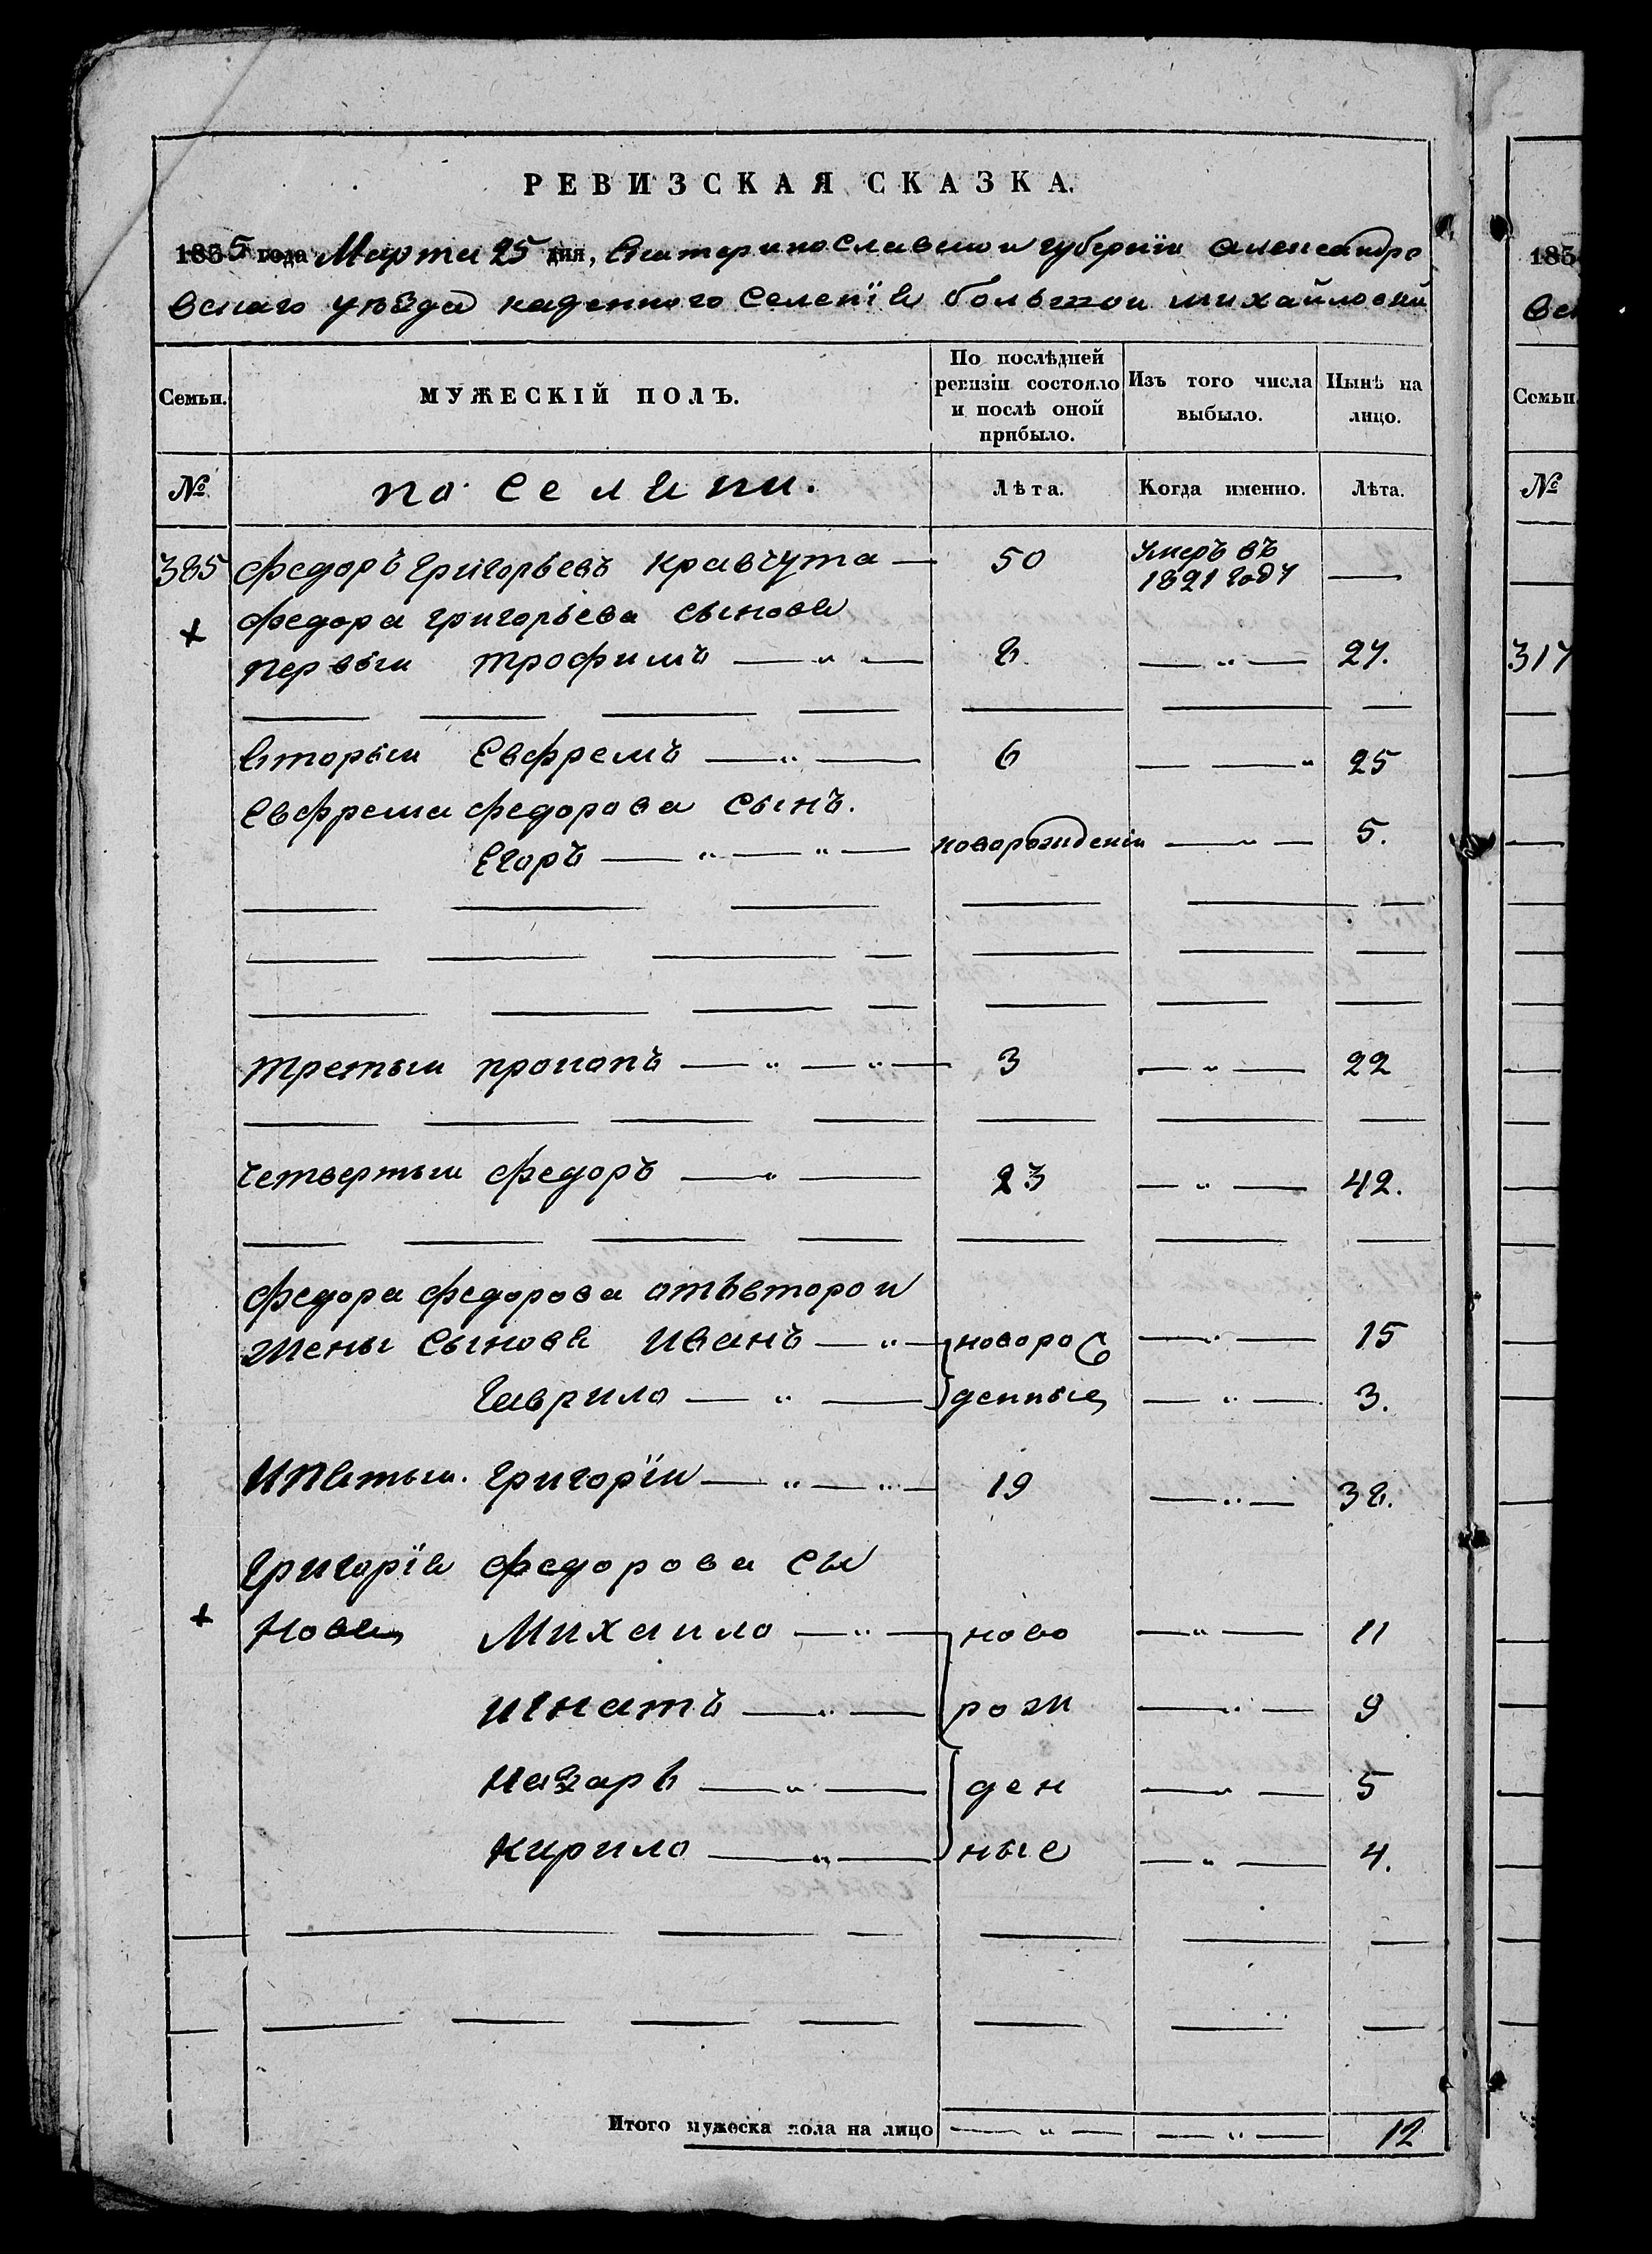 РЕВИЗСКАЯ СКАЗКА.
1835 года Марта 25 дня, Екатеринославской губернїи Александро
вскаго уѣзда казенного селенїя большой михайловки
Семьи. МУЖЕСКІЙ ПОЛЪ. По послѣдней ревизіи состояло и послѣ оной прибыло. Изъ того числа выбыло. Нынѣ на лицо.
№ Лѣта. Когда именно. Лѣта.
385 Федоръ Григорьевъ Кравчута — 50 Умеръ въ 1821 году —
Федора Григорьева сыновя
первый Трофимъ — „ — 8. — „ — 27.
вторый Евфремъ — „ — 6 — „ 25
Евфрема Федорова сынъ.
Егоръ — „ — „ — новорожденій — „ — 5.
третый прокопъ — „ — „ — 3 — „ — 22
четвертый Федоръ — „ — 23 — „ — 42.
Федора Федорова отъвторой
жены сыновя Иванъ — „ — новорож — „ — 15
Гаврило — „ — денные — „ — 3.
ипятый. Григорїй — „ — „ — 19 — „ — 38.
Григорїя Федорова сы
новя Михаило — „ — ново — „ — 11
игнатъ — „ — рож — „ — 9
Назарь — „ — ден — „ — 5
Кирило — „ — ные — „ — 4.
Итого мужеска пола на лицо — „ — — „ — 12
183
Вск
Семьи.
№
317